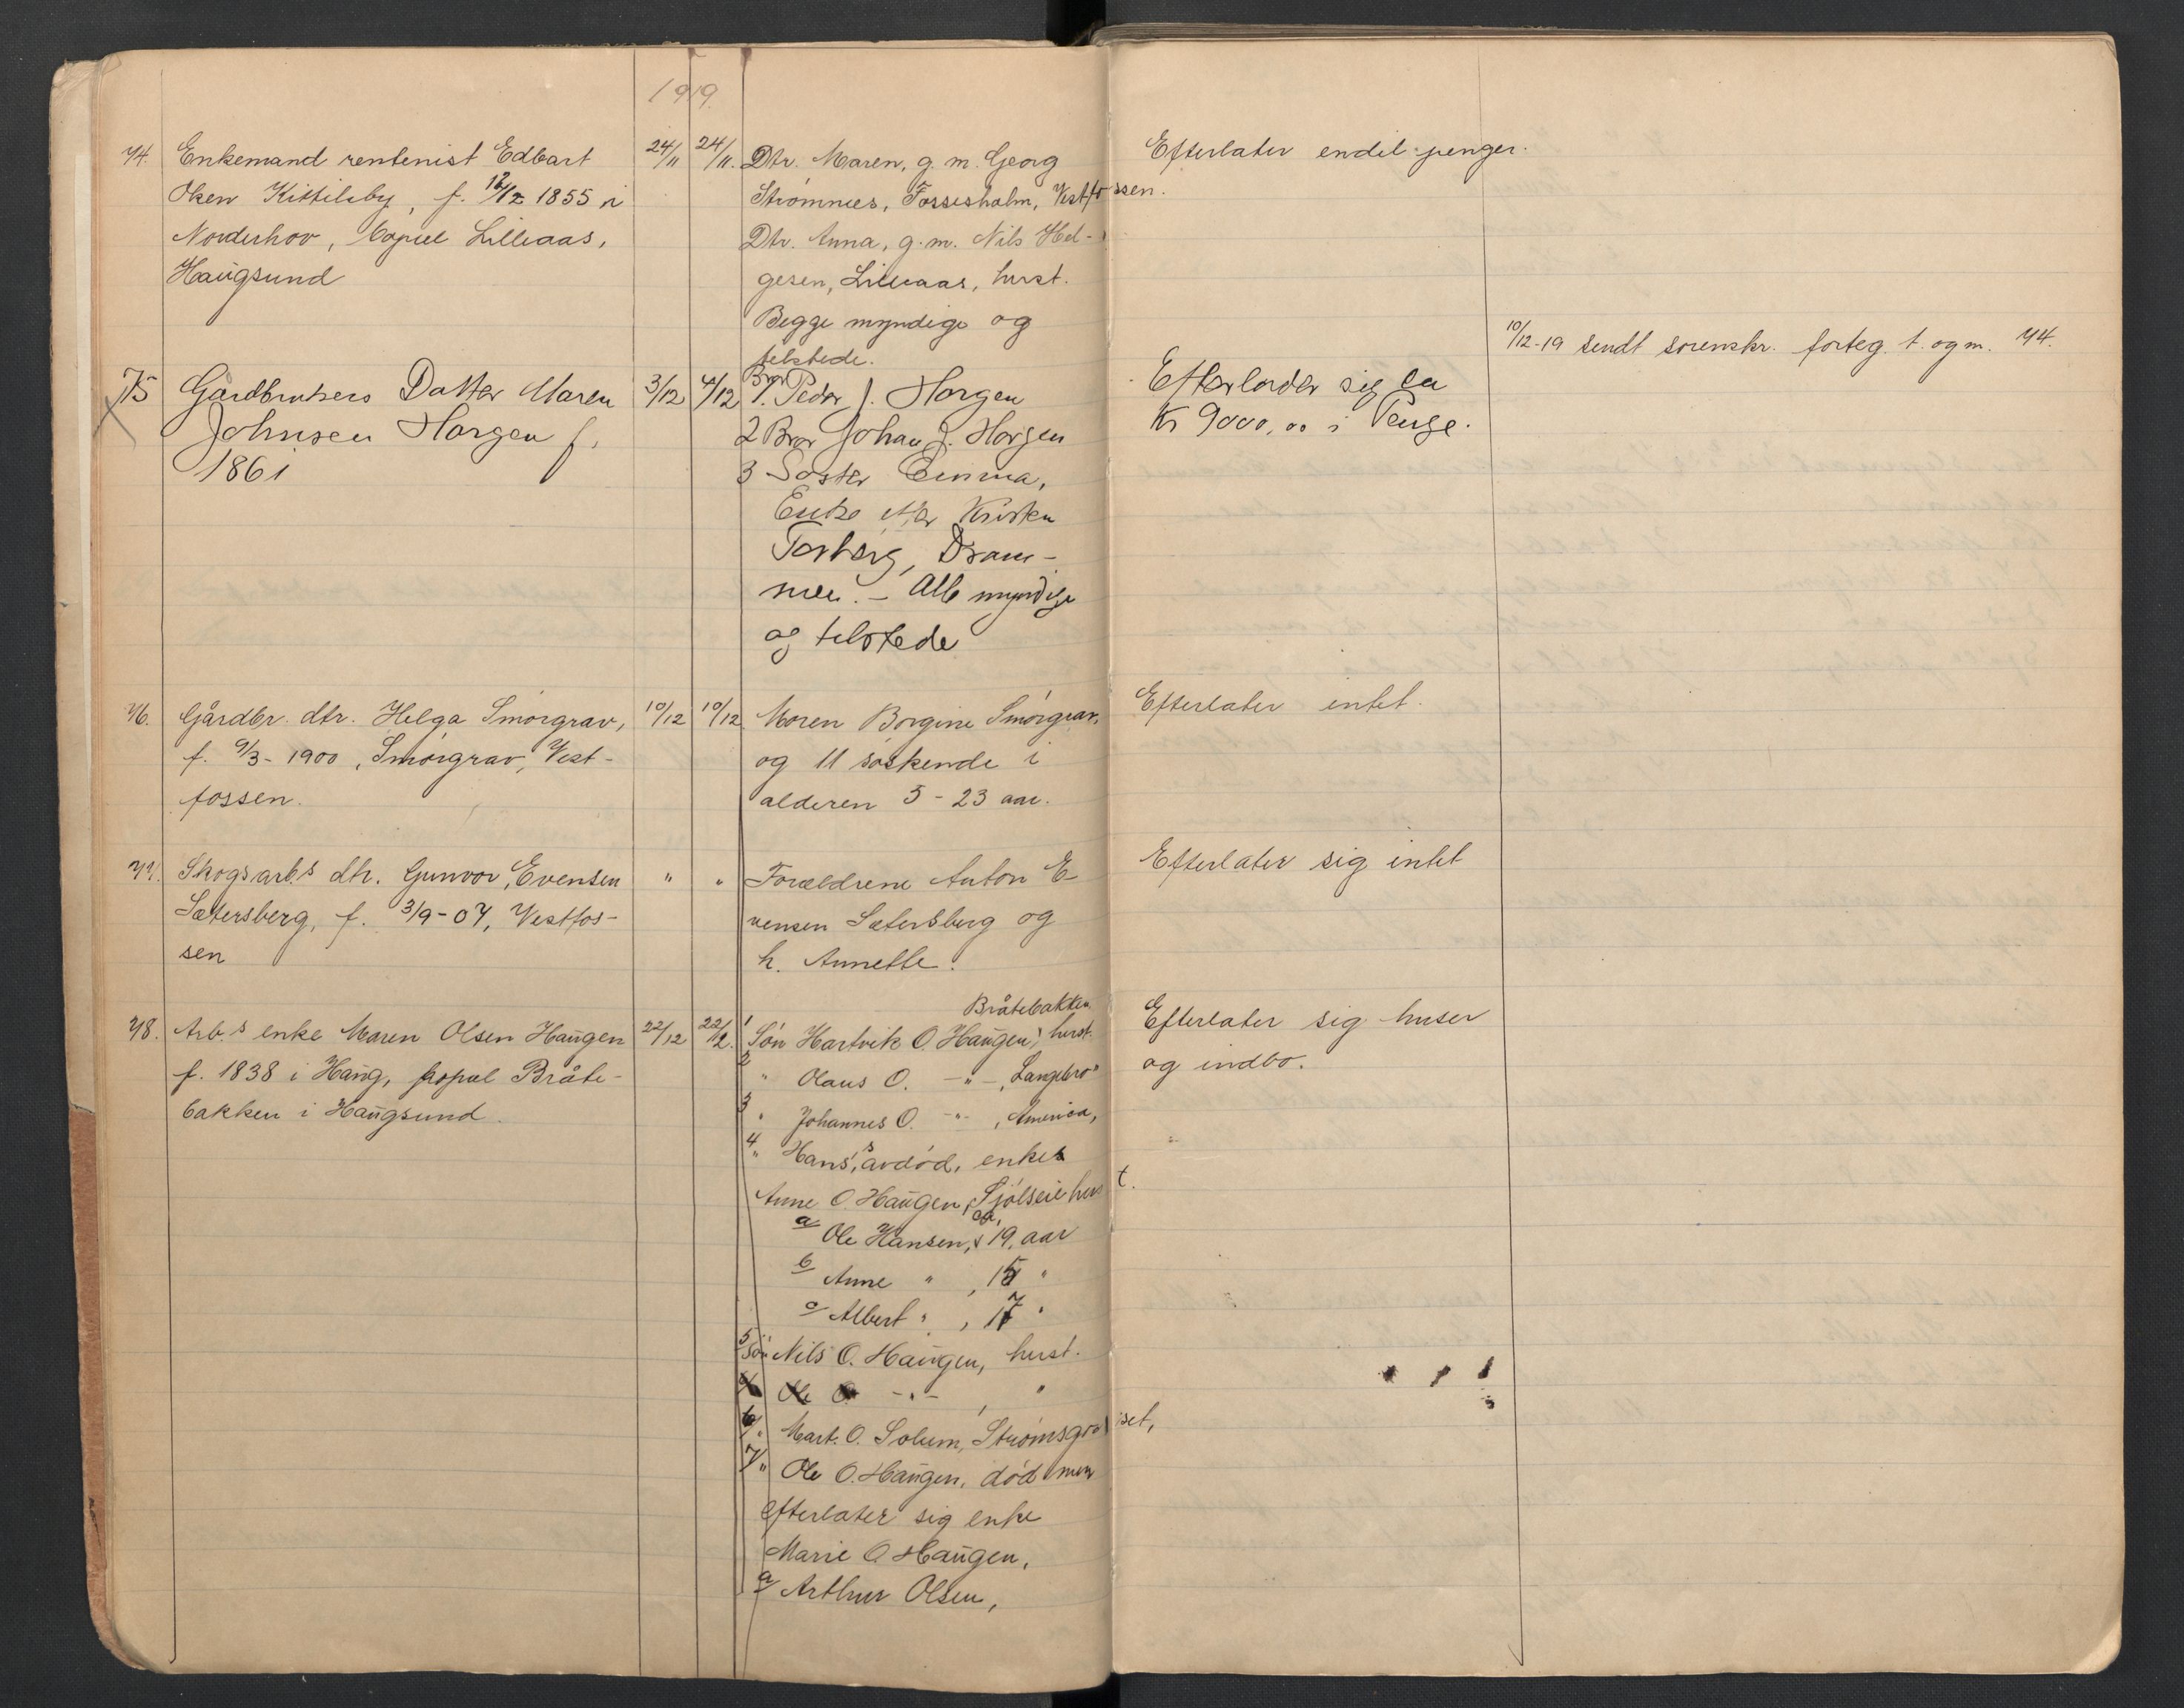 1919.
74.
Enkemand rentenist Edbart
Oken Kittilsby, f. 12/12 1855 i
Norderhov, bopæl Lilleaas,
Haugsund
24/11
24/11.
Dtr. Maren, g. m. Georg
Strømnes, Fossesholm, Vestfossen.
Dtr. Anna, g. m. Nils Hel-
gesen, Lilleaas, herst.
Begge myndige og
tilstede.
Efterlater endel penger.
10/12-19 sendt sorenskr. forteg. t. og m. 74.
75
Gårdbrukers Datter Maren
Johnsen Horgen f.
1861
3/12
4/12
Bror
1. Peder J. Horgen
2 Bror Johan J. Horgen
3 Søster Emma,
Enke efter Kristen
Torberg, Dram-
men. - Alle myndige
og tilstede
Efterlader sig ca
Kr 9000,00 i Penge.
76.
Gårdbr. dtr. Helga Smørgrav,
f. 9/3 - 1900, Smørgrav, Vest-
fossen.
10/12
10/12
Moren Borgine Smørgrav,
og 11 søskende i
alderen 5 - 23 aar.
Efterlater intet.
77.
Skogsarb.s dtr. Gunvor Evensen
Sætersberg, f. 3/9-07, Vestfos-
sen
"
"
Forældrene Anton E-
vensen Sætersberg og
h. Annette.
Efterlater sig intet
78.
Arb.s enke Maren Olsen Haugen
f. 1838 i Haug, bopæl Bråte-
bakken i Haugsund.
22/12
22/12.
Bråtebakken
1 Søn Hartvik O. Haugen, herst.
2 " Olaus O. -"-, Langebro"
3 " Johannes O. -"-, America,
4 " Hans's, avdød, enke
Anne O. Haugen, Sjølseie herst.
a Ole Hansen, ca. 19 aar
b Anne " , 15 "
c Albert " , 17 "
5 Søn Nils O. Haugen, herst.
Ole O. -"- , "
6 " Mart. O. Solum, Strømsgodset,
7 " Ole O. Haugen, død men
efterlater sig enke
Marie O. Haugen,
a Arthur Olsen,
Efterlater sig huser
og indbo.